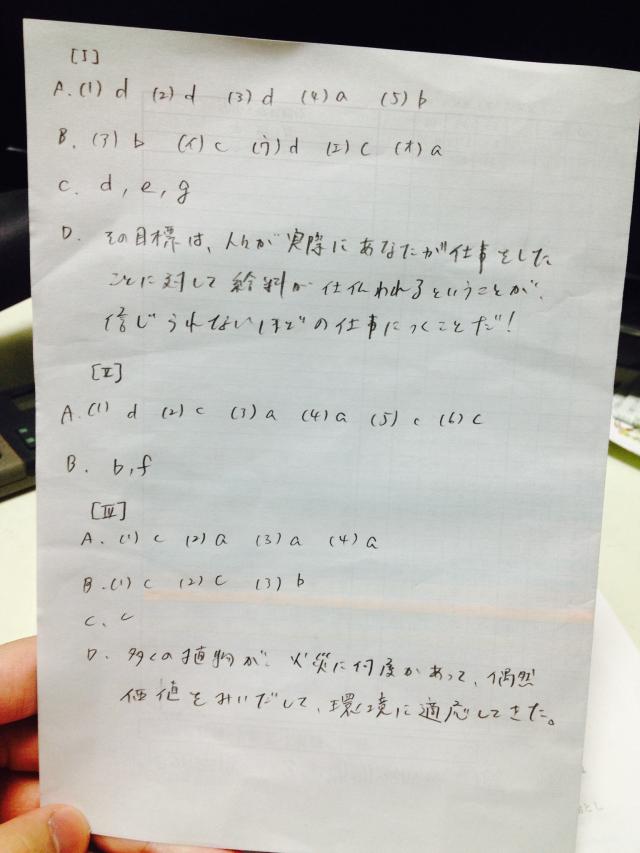 [I]
A. (1) d (2) d (3) d (4) a (5) b
B. (ア) b (イ) c (ウ) d (エ) c (オ) a
C. d, e, g
D. その目標は、人々が実際にあなたが仕事をした
ことに対して給料が仕仏われるということが、
信じられないほどの仕事につくことだ!
[II]
A. (1) d (2) c (3) a (4) a (5) c (6) c
B. b, f
[III]
A. (1) c (2) a (3) a (4) a
B. (1) c (2) c (3) b
C. c
D. 多くの植物が、火災に何度かあって、偶然
価値をみいだして、環境に適応してきた。